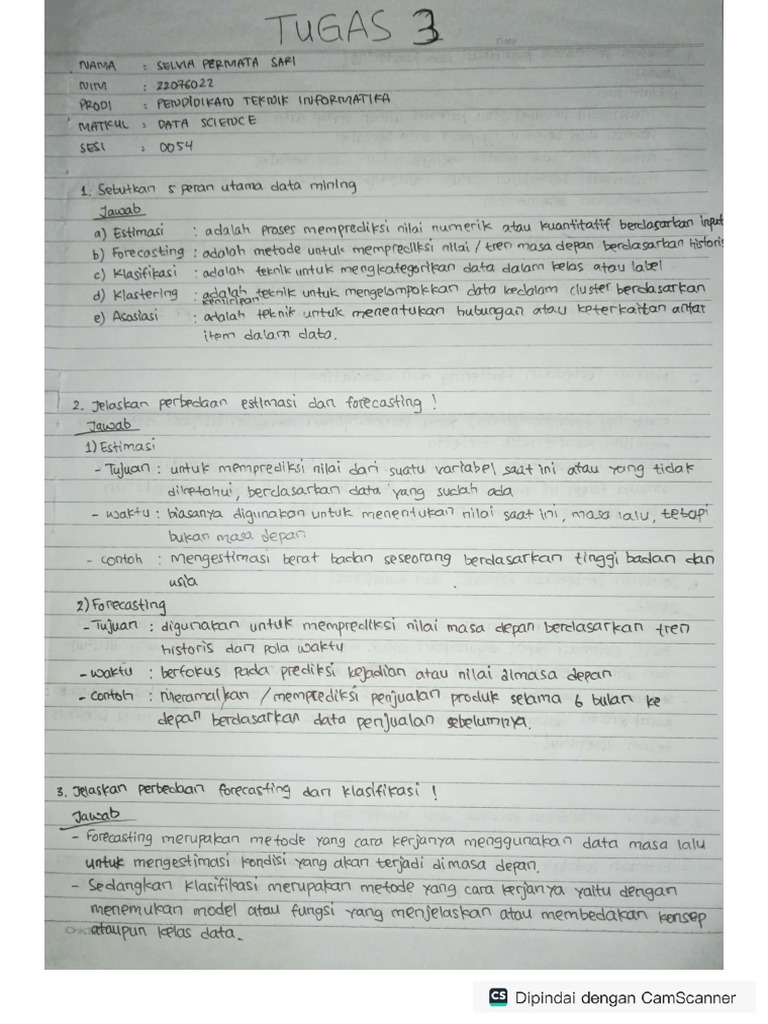 TUGAS 3
Date
NAMA : SELVIA PERMATA SARI
NIM : 22076022
PRODI : PENDIDIKAN TEKNIK INFORMATIKA
MATKUL : DATA SCIENCE
SESI : 0054
1. Sebutkan 5 peran utama data mining
Jawab
a) Estimasi : adalah proses memprediksi nilai numerik atau kuantitatif berdasarkan input
b) Forecasting : adalah metode untuk memprediksi nilai / tren masa depan berdasarkan historis
c) Klasifikasi : adalah teknik untuk mengkategorikan data dalam kelas atau label
d) Klastering : adalah teknik untuk mengelompokkan data kedalam cluster berdasarkan
kemiripan
e) Asosiasi : adalah teknik untuk menentukan hubungan atau keterkaitan antar
item dalam data.
2. Jelaskan perbedaan estimasi dan forecasting !
Jawab
1) Estimasi
- Tujuan : untuk memprediksi nilai dari suatu variabel saat ini atau yang tidak
diketahui, berdasarkan data yang sudah ada
- waktu : biasanya digunakan untuk menentukan nilai saat ini, masa lalu, tetapi
bukan masa depan
- contoh : mengestimasi berat badan seseorang berdasarkan tinggi badan dan
usia
2) Forecasting
- Tujuan : digunakan untuk memprediksi nilai masa depan berdasarkan tren
historis dan pola waktu
- waktu : berfokus pada prediksi kejadian atau nilai dimasa depan
- contoh : meramalkan / memprediksi penjualan produk selama 6 bulan ke
depan berdasarkan data penjualan sebelumnya.
3. Jelaskan perbedaan forecasting dan klasifikasi !
Jawab
- Forecasting merupakan metode yang cara kerjanya menggunakan data masa lalu
untuk mengestimasi kondisi yang akan terjadi dimasa depan.
- Sedangkan klasifikasi merupakan metode yang cara kerjanya yaitu dengan
menemukan model atau fungsi yang menjelaskan atau membedakan konsep
ataupun kelas data.
CS Dipindai dengan CamScanner